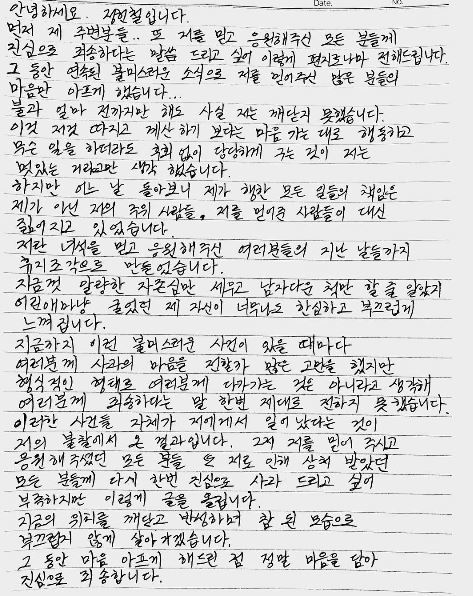 Date. No.
안녕하세요. 정현철입니다.
먼저 제 주변분들.. 또 저를 믿고 응원해주신 모든 분들께
진심으로 죄송하다는 말씀 드리고 싶어 이렇게 편지로나마 전해드립니다.
그 동안 연속된 불미스러운 소식으로 저를 믿어주신 많은 분들의
마음만 아프게 했습니다...
불과 얼마 전까지만 해도 사실 저는 깨닫지 못했습니다.
이것 저것 따지고 계산 하기 보다는 마음 가는 대로 행동하고
무슨 일을 하더라도 후회 없이 당당하게 구는 것이 저는
멋있는 거라고만 생각 했습니다.
하지만 어느 날 돌아보니 제가 행한 모든 일들의 책임은
제가 아닌 저의 주위 사람들, 저를 믿어준 사람들이 대신
짊어지고 있었습니다.
저란 녀석을 믿고 응원해주신 여러분들의 지난 날들까지
휴지조각으로 만들었습니다.
지금껏 알량한 자존심만 세우고 남자다운 척만 할 줄 알았지
어린애마냥 굴었던 제 자신이 너무나도 한심하고 부끄럽게
느껴집니다.
지금까지 이런 불미스러운 사건이 있을 때마다
여러분께 사과의 마음을 전할까 많은 고민을 했지만
형식적인 형태로 여러분께 다가가는 것은 아니라고 생각해
여러분께 죄송하다는 말 한번 제대로 전하지 못했습니다.
이러한 사건들 자체가 저에게서 일어났다는 것이
저의 불찰에서 온 결과입니다. 그저 저를 믿어 주시고
응원해주셨던 모든 분들 또 저로 인해 상처 받았던
모든 분들께 다시 한번 진심으로 사과 드리고 싶어
부족하지만 이렇게 글을 올립니다.
지금의 위치를 깨닫고 반성하며 참 된 모습으로
부끄럽지 않게 살아가겠습니다.
그 동안 마음 아프게 해드린 점 정말 마음을 담아
진심으로 죄송합니다.